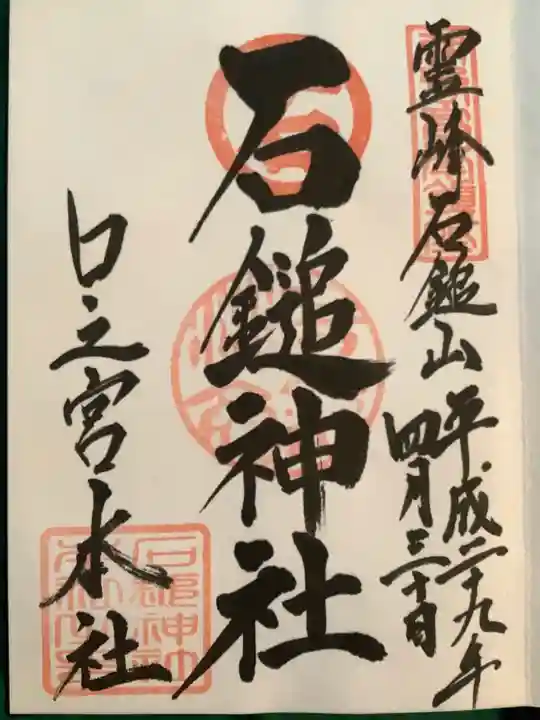 霊峰石鎚山
平成二十九年
四月三十日
石鎚神社
口之宮本社
石鎚神社